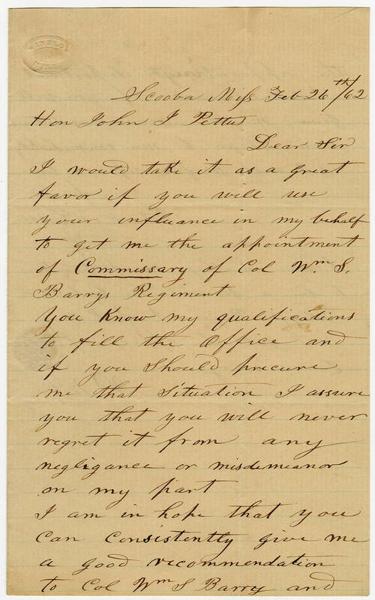 Scooba Miss Feb 26th/62
Hon John J Pettus
Dear Sir
I would take it as a great
favor if you will use
your influance in my behalf
to get me the appointment
of Commissary of Col Wm. S.
Barrys Regiment
You Know my qualifications
to fill the Office and
if you Should procure
me that Situation I assure
you that you will never
regret it from any
negligance or misdemeanor
on my part
I am in hope that you
Can Consistently give me
a good recommendation
to Col Wm S Barry and